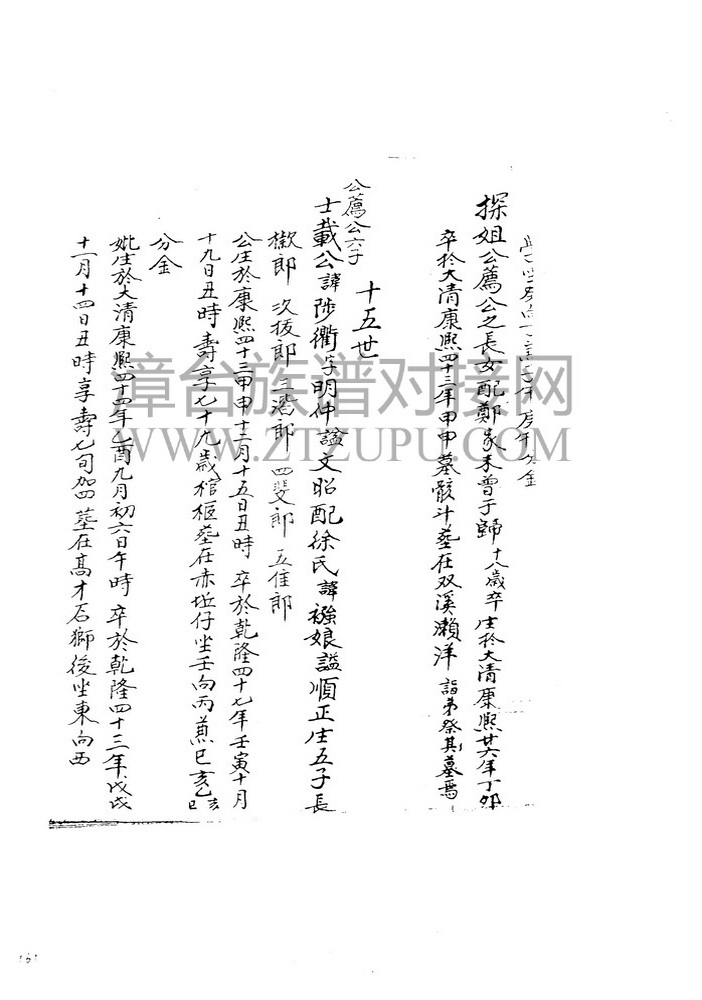 庚午分金
探姐公薦公之長女配鄭家未曾于歸十八歲卒生於大清康熙廿六年丁卯
卒於大清康熙四十三年甲申墓骸斗塟在双溪瀨洋詣弟祭其墓焉
十五世
公薦公六子
士載公諱陟衢字明仲諡文昭配徐氏諱襁娘諡順正生五子長
歡郎次拔郎三潛郎四斐郎五隹郎
公生於康熙四十三甲申十二月十五日丑時卒於乾隆四十七年壬寅十月
十九日丑時壽享七十九歲棺柩塟在赤坵仔坐壬向丙兼巳亥乙亥巳
分金
妣生於大清康熙四十四年乙酉九月初六日午時卒於乾隆四十三年戊戌
十一月十四日丑時享壽七旬加四墓在高才石獅後坐東向西
章台族谱对接网
WWW.ZTZUPU.COM
161